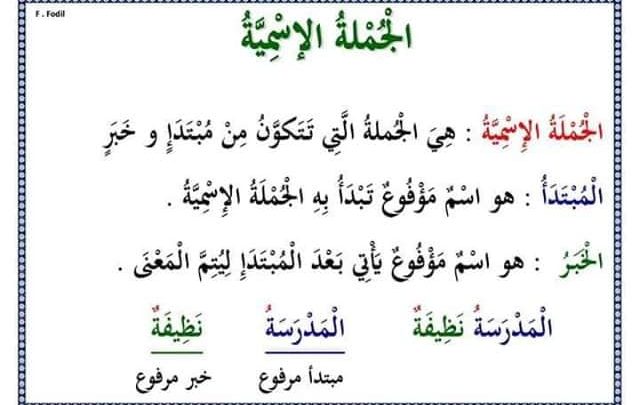 F . Fodil
الْجُمْلَةُ الإسْمِيَّةُ
الْجُمْلَةُ الإِسْمِيَّةُ : هِيَ الْجُملةُ الَّتِي تَتَكوَّنُ مِنْ مُبْتَدَإٍ و خَبَرٍ
الْمُبْتَدَأُ : هو اسْمٌ مَؤْفُوعٌ تَبْدَأُ بِهِ الْجُمْلَةُ الإِسْمِيَّةُ .
الْخَبَرُ : هو اسْمٌ مَؤْفُوعٌ يَأْتِي بَعْدَ الْمُبْتَدَإِ لِيُتِمَّ الْمَعْنَى .
الْمَدْرَسَةُ نَظِيفَةٌ الْمَدْرَسَةُ نَظِيفَةٌ
مبتدأ مرفوع خبر مرفوع